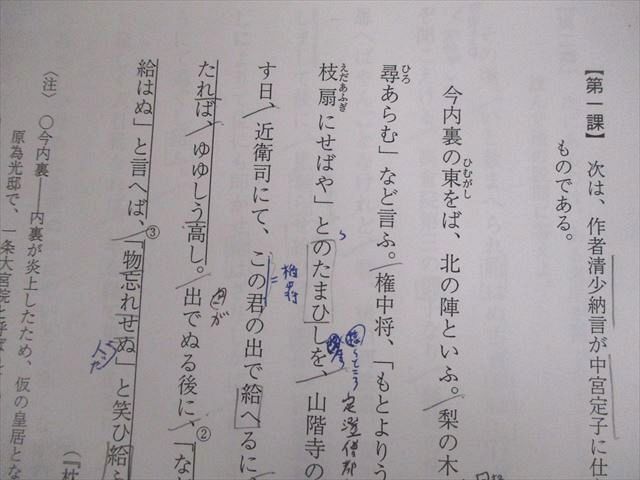 【第一課】 次は、作者清少納言が中宮定子に仕
ものである。
今内裏の東をば、北の陣といふ。梨の木
ひむがし
尋あらむ」など言ふ。権中将、「もとよりう
ひろ
枝扇にせばや」とのたまひしを、山階寺の
えだあふぎ
定澄僧都
す日、近衛司にて、この君の出で給へるに
権中将
たれば、ゆゆしう高し。出でぬる後に、「な
②
が
給はぬ」と言へば、「物忘れせぬ」と笑ひ給
③
〈注〉 ○今内裏――内裏が炎上したため、仮の皇居とな
原為光邸で、一条大宮院と呼
(『枕